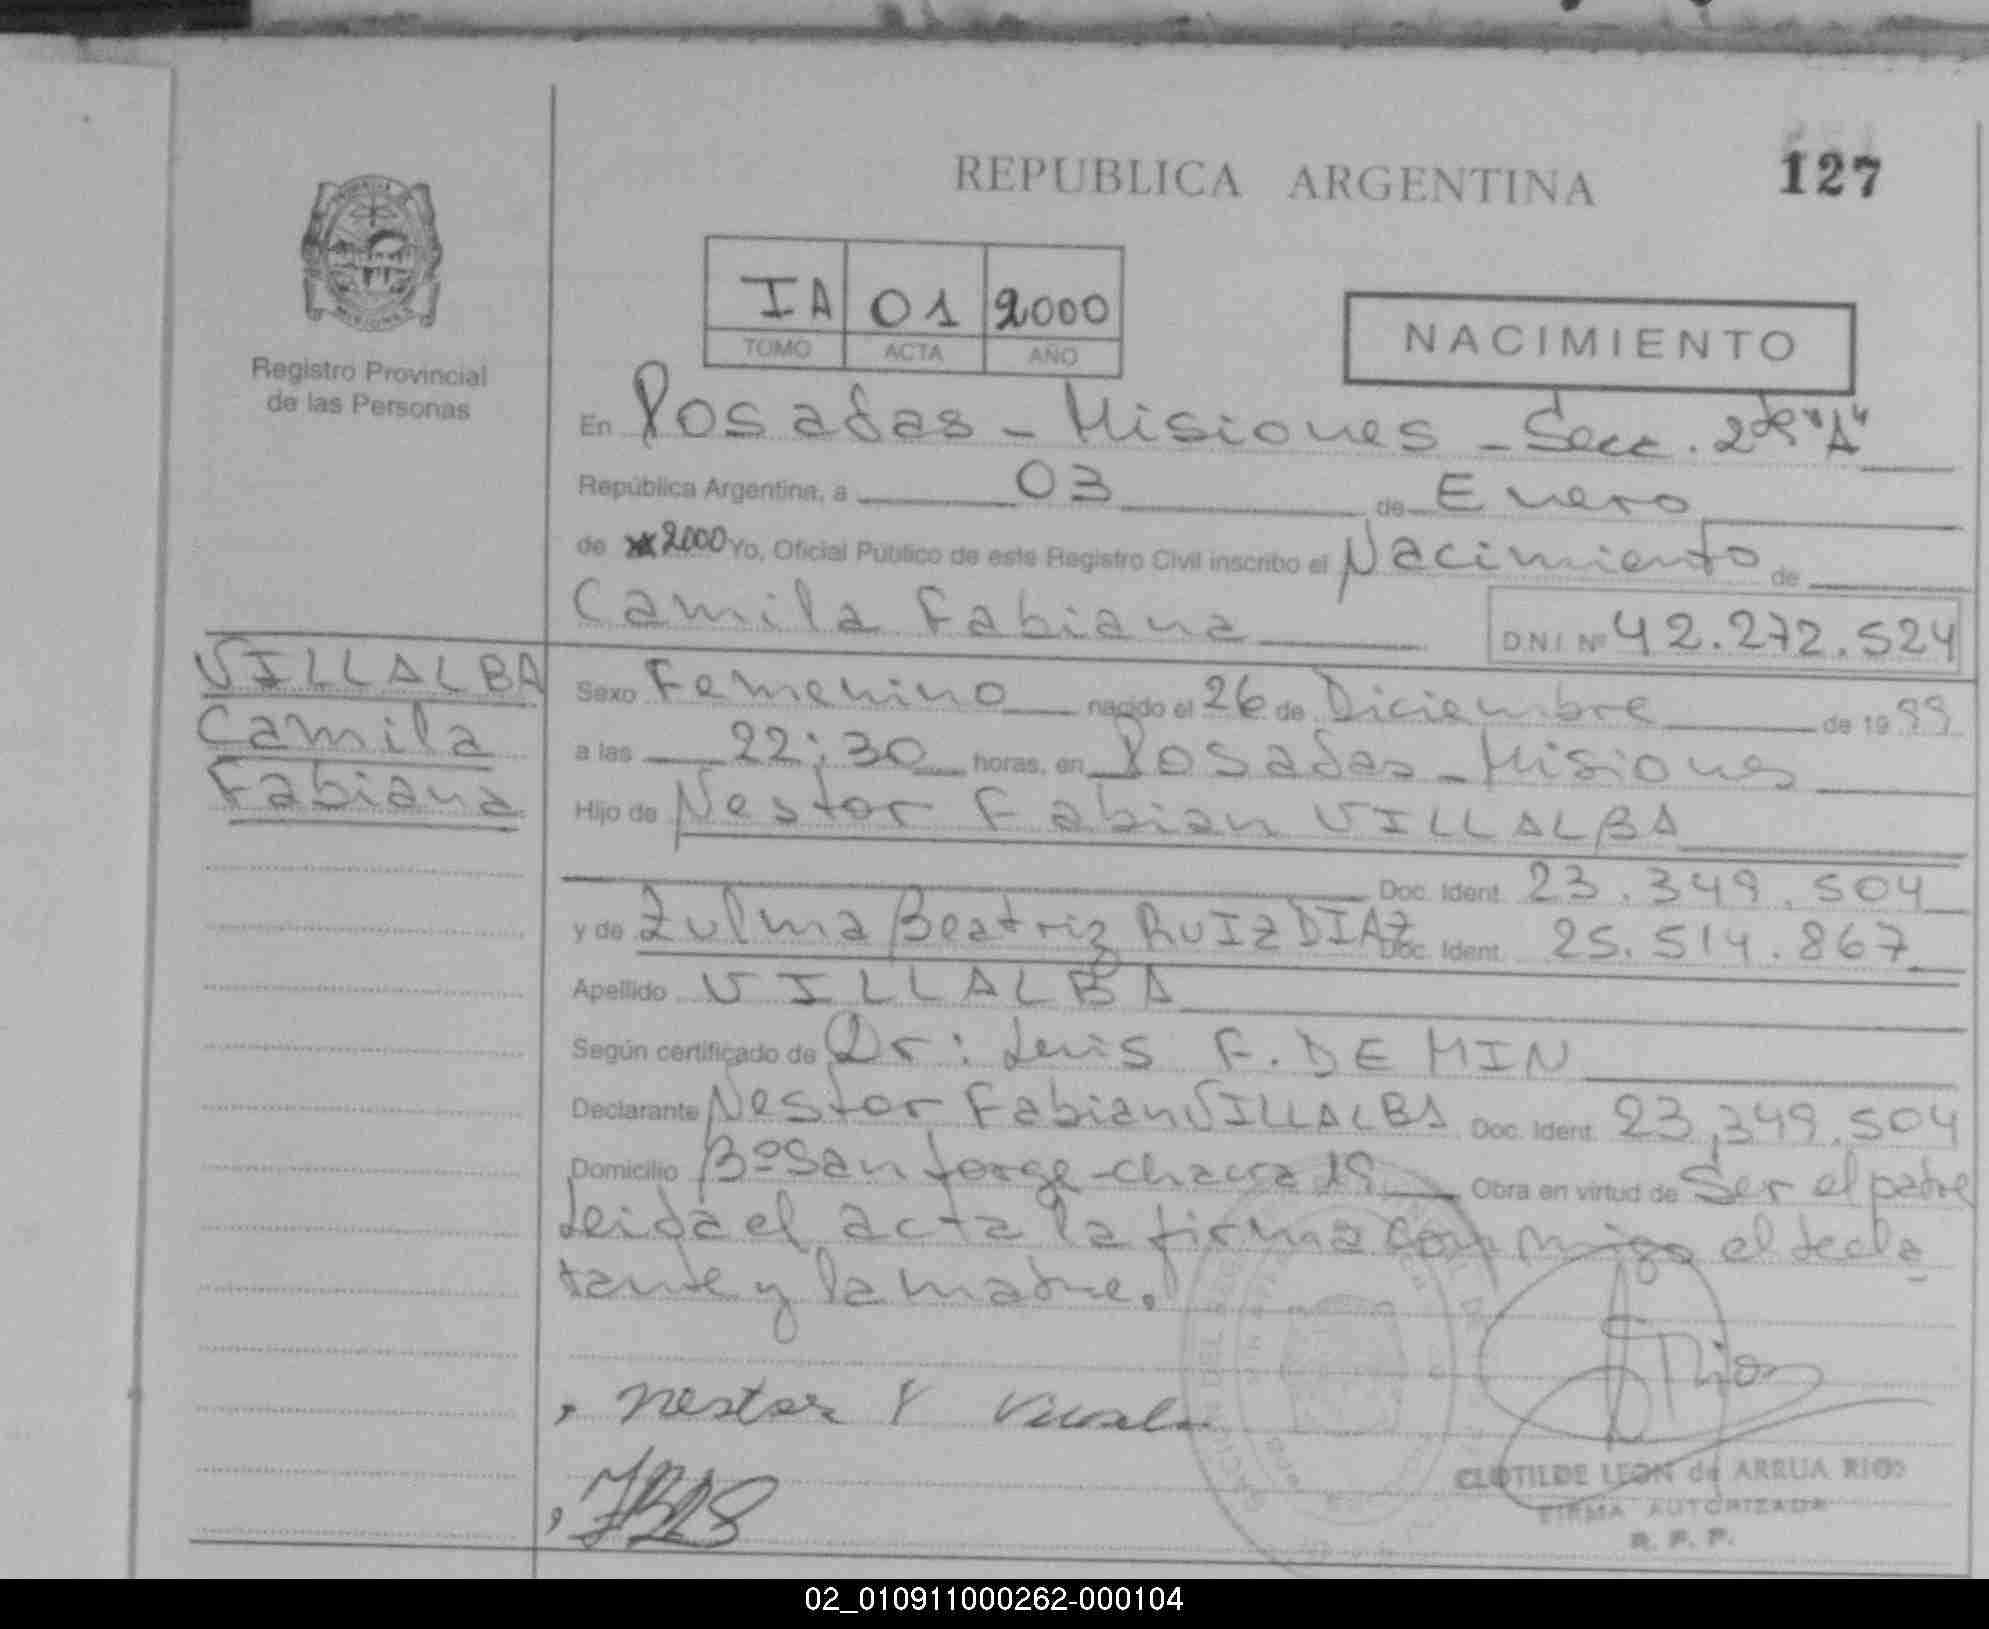 127
REPUBLICA ARGENTINA
IA 01 2000
TOMO ACTA AÑO
NACIMIENTO
MISIONES
Registro Provincial
de las Personas
En Posadas - Misiones - Secc. 2da "A"
República Argentina, a 03 de Enero
de 2000 Yo, Oficial Público de este Registro Civil inscribo el Nacimiento de
Camila Fabiana D.N.I. Nº 42.272.524
VILLALBA
Camila
Fabiana
Sexo Femenino nacido el 26 de Diciembre de 1999
a las 22:30 horas, en Posadas - Misiones
Hijo de Nestor Fabian VILLALBA
Doc. Ident. 23.349.504
y de Zulma Beatriz RUIZ DIAZ Doc. Ident. 25.514.867
Apellido VILLALBA
Según certificado de Dr: Luis F. DE MIN
Declarante Nestor Fabian VILLALBA Doc. Ident. 23,349.504
Domicilio Bº San Jorge - chacra 19 Obra en virtud de Ser el padre
Leida el acta la firma con migo el decla
rante y la madre.
Nestor
CLOTILDE LEON de ARRUA RIOS
FIRMA AUTORIZADA
R. P. P.
02_010911000262-000104